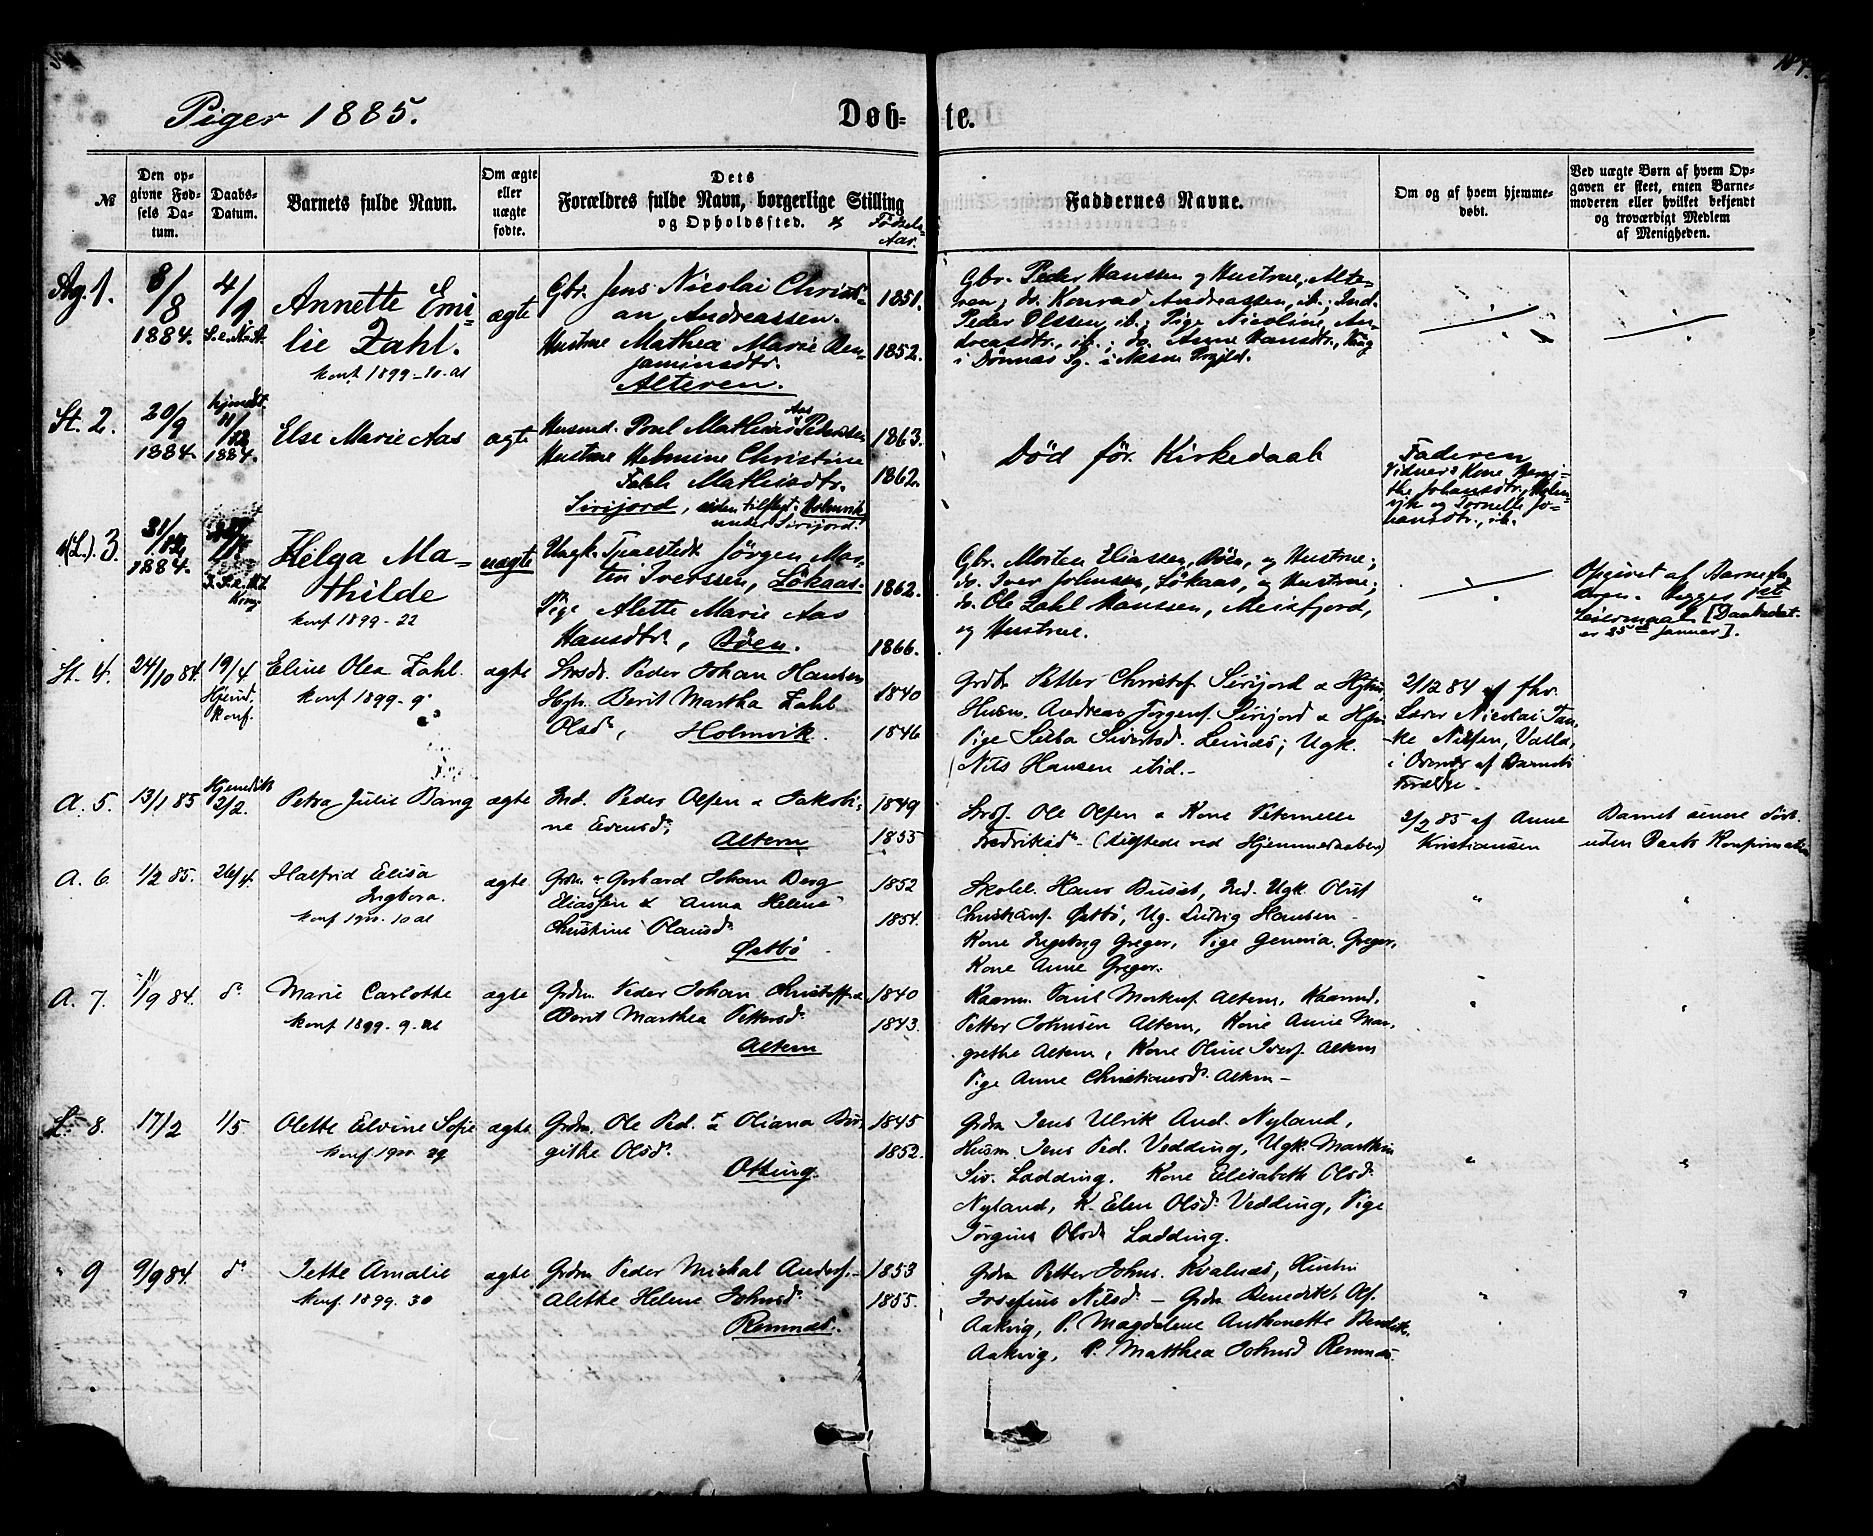 Piger 1885.
Døb-
te.
№
Den opgivne Fødsels Datum.
Daabs-Datum.
Barnets fulde Navn.
Om ægte eller uægte fødte.
Dets
Forældres fulde Navn, borgerlige Stilling
og Opholdssted. & Fødsels-Aar.
Faddernes Navne.
Om og af hvem hjemme-
døbt.
Ved uægte Børn af hvem Op-
gaven er skeet, enten Barne-
moderen eller hvilket bekjendt
og troværdigt Medlem
af Menigheden.
Ag. 1.
8/8
1884.
4/1
Annette Emi-
lie Zahl.
konf 1899-20. al
ægte
Gbr. Jens Nicolai Christi-
an Andreassen.
Hustrue Mathea Marie Ben-
jaminsdtr.
Alteren.
1851.
1852.
Gbr. Peder Hanssen og Hustrue, Alte-
ren; do. Konrad Andreassen, ib.; Ind.
Peder Olssen, ib.; Pige Nicoline An-
dreasdtr., ib.; do. Anne Hansdtr.,
i Dönnæs Sg. i Næsne Prgjld.
St. 2.
20/9
1884.
hjemdt.
11/12
1884.
Else Marie Aas
ægte
Husmd. Poul Mathias Aas Pedersen
Hustrue Helmine Christine
Falch Mathisdtr.
Sirijord, siden tilföiet: Holmvik
under Sirijord.
1863.
1862.
Död för Kirkedaab
Faderen
Vidner: Kone
Johansdtr., Holm-
vik og Jo-
hansdtr., ib.
(L.) 3.
31/12
1884.
Helga Ma-
thilde
konf 1899-22
uægte
Ungk. Tjenestedr. Jörgen Mar-
tin Iverssen, Lökaas.
Pige Alette Marie Aas
Hansdtr., Böen.
1862.
1866.
Gbr. Morten Eliassen, Böen, og Hustrue;
do. Iver Johnsen, Lökaas, og Hustrue;
do. Ole Zahl Hanssen, Meisfjord,
og Hustrue.
Opgivet af Barnefa-
deren. Begges 1ste
Leiermaal [Daabsdat.
er 25de Januar].
St. 4.
24/10 84.
19/4
Hjemd.
Konf.
Eline Olea Zahl.
konf 1899-9
ægte
Peder Johan Hansen
Berit Martha Zahl
Olsd., Holmvik.
1840
1846
Petter Christof. Sirijord &
Husm. Andreas Sirijord &
Pige Silba Sivertsd. Leines; Ugk.
Nils Hansen ibid.-
2/12 84 af fhv.
Lærer Nicolai Tan-
ke Nilsen, Valla,
i Overvær af Barnets
Forældre.
A. 5.
13/1 85
Hjemdöbt
2/2.
Petra Julie Bang
ægte
Ind. Peder Olsen & Jakobi-
ne Evensd.
Altern
1849
1853
Ole Olsen & Kone Peternelle
Fredriksd. (tilstede ved Hjemmedaaben)
2/2 85 af Anne
Kristiansen
Barnet senere dödt
uden Daabs Konfirmation
A. 6.
1/2 85.
26/4.
Halfrid Elisa
Ingbora.
konf 1900. 10 al
ægte
Grdm. Gerhard Johan Berg
Eliassen & Anna Helene
Christine Olausd.
Østbö
1852
1854.
Skolel. Hans Buset, Ind. Ugk. Oluf
Christians. Østbö, Ug. Ludvig Hansen
Kone Ingeborg Greger, Pige Generia Greger,
Kone Anne Greger.
"
"
A. 7.
11/9 84.
do.
Marie Carlotte
konf 1899. 9. al
ægte
Grdm. Peder Johan Christoff. &
Berit Marthea Pettersd.
Altern
1840
1843.
Kaarm. Paul Markus. Altern, Kaarmd.
Petter Johnsen Altern, Kone Anne Mar-
grethe Altern, Kone Oline Ivers. Altern
Pige Anne Christiansd. Altern-
"
"
L. 8.
17/2
1/5
Olette Elvine Sofie
konf 1900. 29
ægte
Grdm. Ole Ped. & Oliana Bir-
gitte Olsd.
Otting.
1845
1852.
Grdm. Jens Ulrik And. Nyland,
Husm. Jens Ped. Vedding, Ugk. Marthin
Siv. Ladding. Kone Elisabeth Olsd.
Nyland, K. Elen Olsd. Vedding, Pige
Jörgine Olsd. Ladding.
"
"
" 9
9/9 84.
do.
Jette Amalie
konf. 1899. 30
ægte
Grdm Peder Mickal Anders. -
Alette Helene Johnsd.
Remnes.
1853
1855.
Grdm Petter Johns. Kvalnes, Hustru
Josefine Nilsd. - Grdm Benedikt Af.
Aakvig, P. Magdalene Anthonette Bendik.
Aakvig, P. Matthea Johnsd Remnes.
"
"